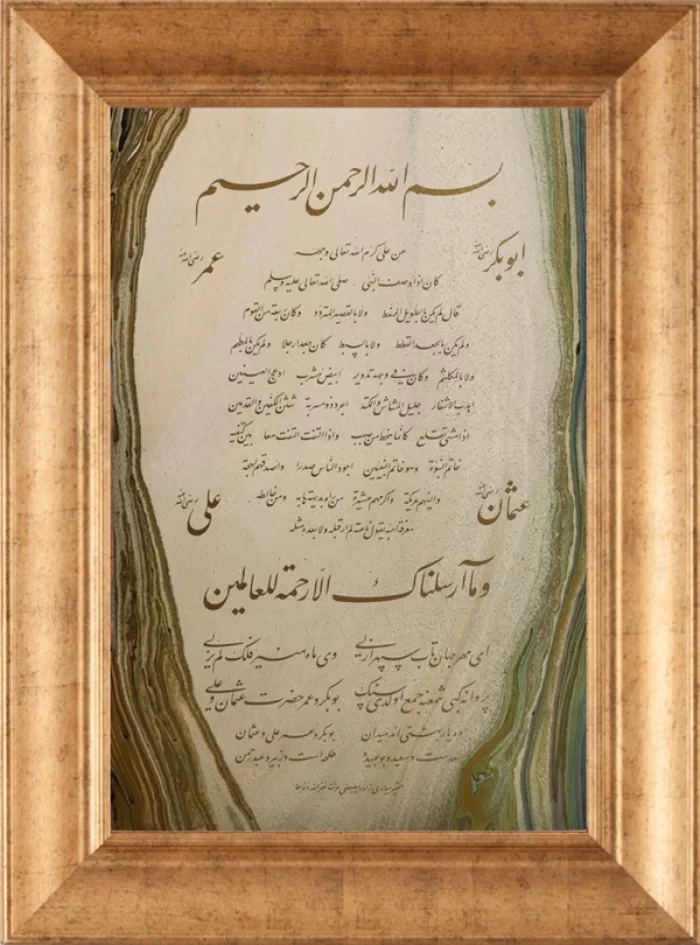 بسم الله الرحمن الرحيم
ابوبكر رضى الله عنه
عمر رضى الله عنه
عن على كرم الله تعالى وجهه
كان اذا وصف النبى صلى الله تعالى عليه وسلم
قال لم يكن بالطويل الممغط ولا بالقصير المتردد وكان ربعة من القوم
ولم يكن بالجعد القطط ولا بالسبط كان جعدا رجلا ولم يكن بالمطهم
ولا بالمكلثم وكان فى وجهه تدوير ابيض مشرب ادعج العينين
اهدب الاشفار جليل المشاش والكتد اجرد ذو مسربة شثن الكفين والقدمين
اذا مشى تقلع كانما ينحط من صبب واذا التفت التفت معا بين كتفيه
خاتم النبوة وهو خاتم النبيين اجود الناس صدرا واصدقهم لهجة
والينهم عريكة واكرمهم عشيرة من راه بديهة هابه ومن خالطه
معرفة احبه يقول ناعته لم ار قبله ولا بعده مثله
عثمان رضى الله عنه
على رضى الله عنه
وما أرسلناك الا رحمة للعالمين
اى مهر جهان تاب سپهر ازلى وى ماه منير فلك لم يزلى
پروانه كبى شمعنه جمع اولدى سنك بوبكر و عمر حضرت عثمان و على
ده يار بهشتى اند بوبكر و عمر على و عثمان
سعدست و سعيد و بوعبيده طلحه است و زبير و عبدرحمن